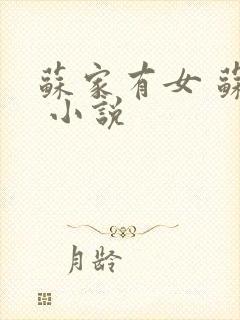 蘇家有女 蘇
小說
月齡